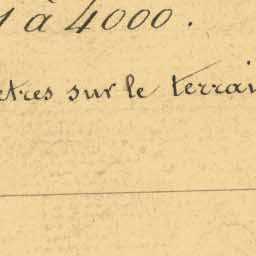 1 à 4000.
etres sur le terrai